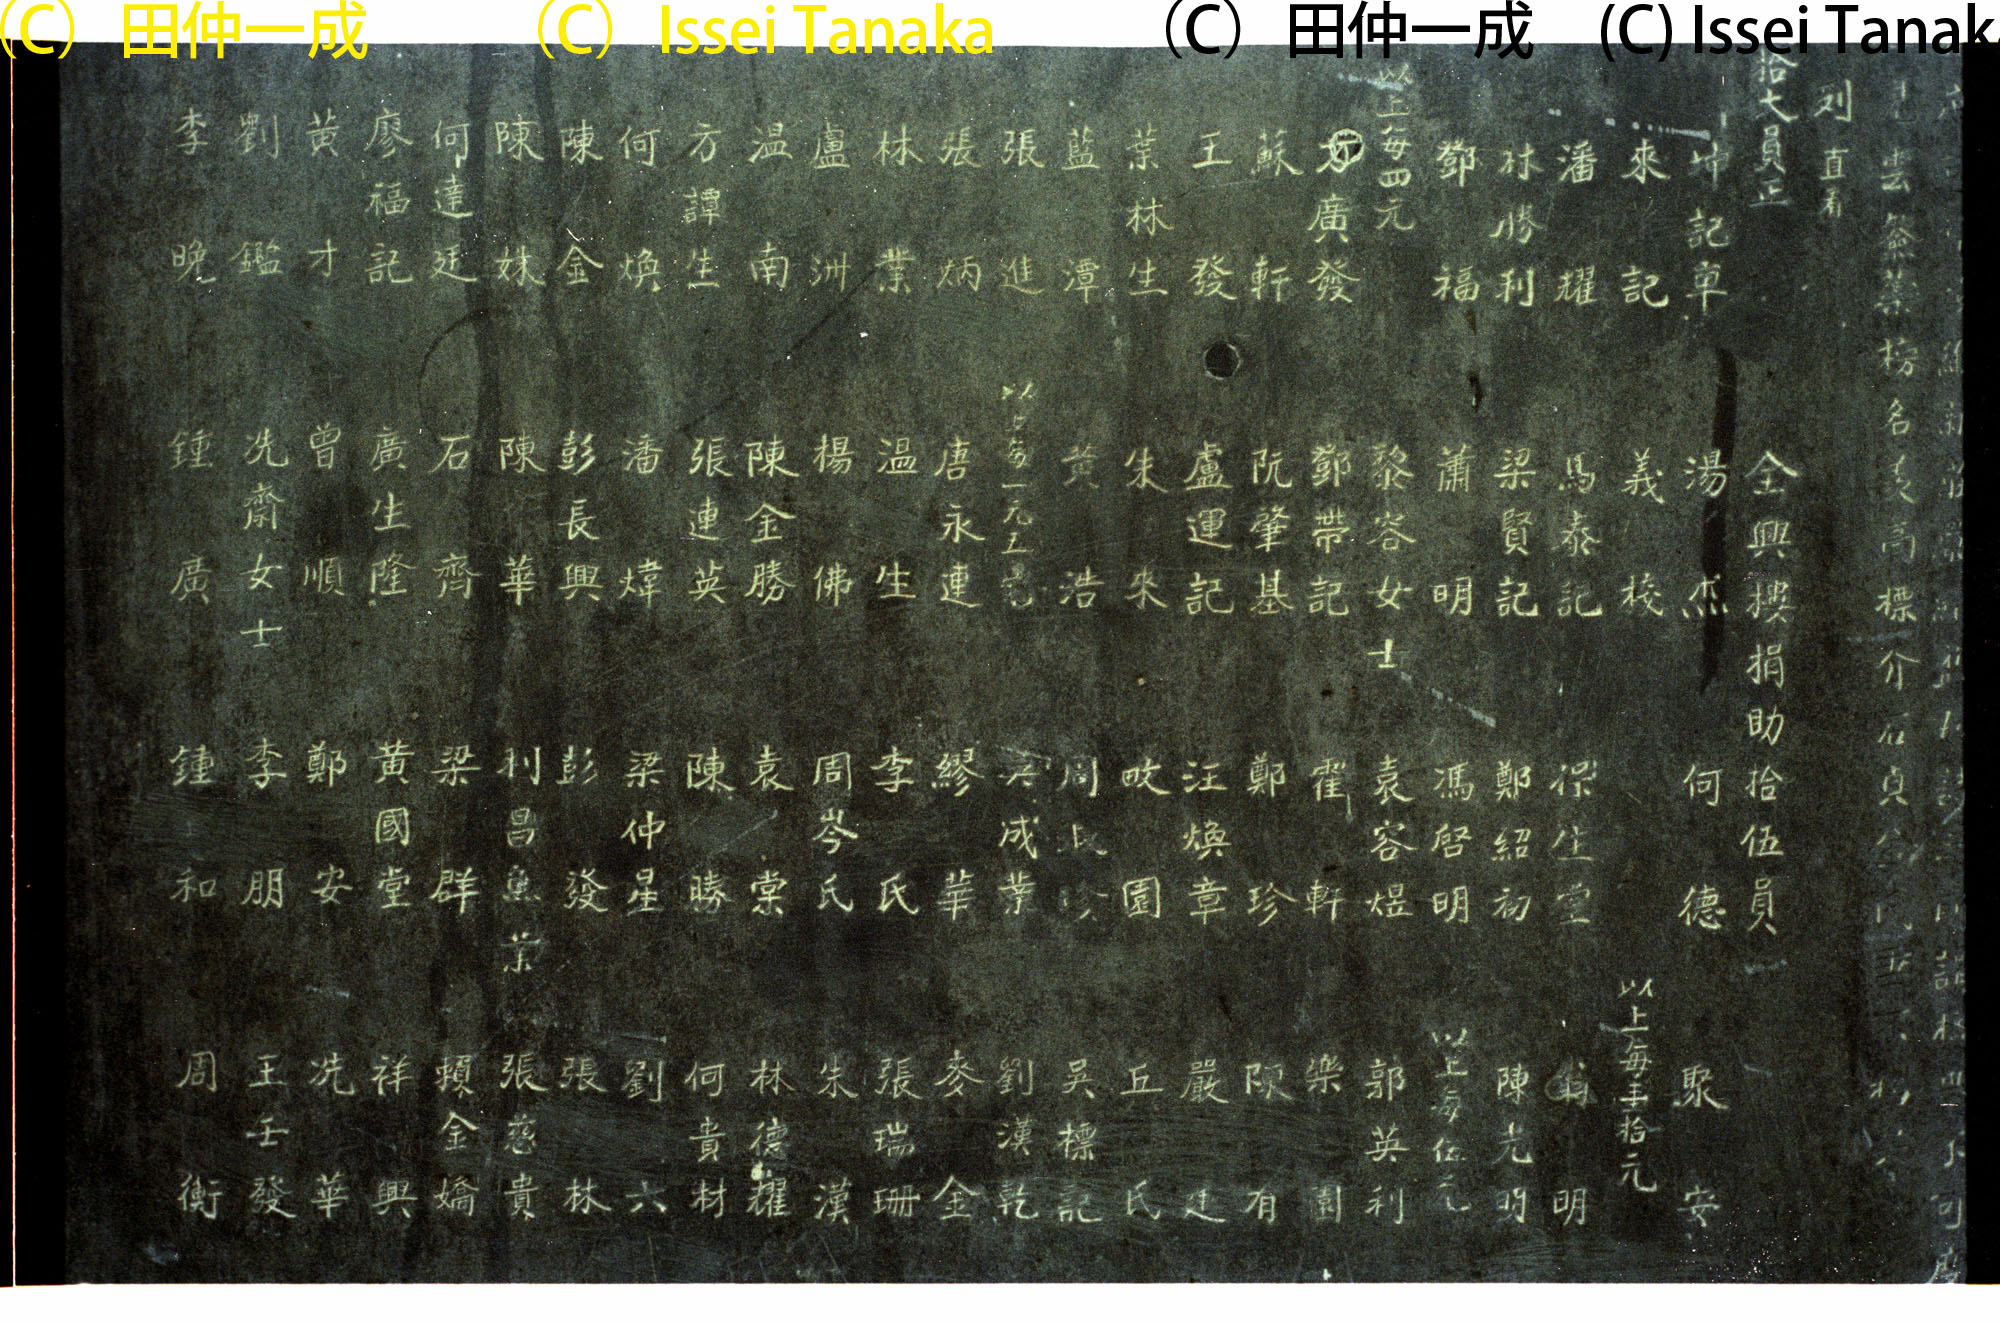 (C) 田仲一成 (C) Issei Tanaka (C) 田仲一成 (C) Issei Tanaka
雲 榜名 高標介石貞
列 直看
拾大員正
全興樓捐助拾伍員
坤記車 湯杰 何德 聚安
來記 義棧 以上每拾元
潘耀 馬泰記 保生堂 翁明
林勝利 梁賢記 鄭紹初 陳光明
鄧福 蕭明 馮啓明 以上每伍元
以上每四元 黎容女士 袁容煜 郭英利
方廣發 鄧帶記 霍軒 樂園
蘇軒 阮肇基 鄭珍 陳有
王發 盧運記 汪煥章 嚴廷
葉林生 朱來 畋園 丘氏
藍潭 黃浩 周珍 吳標記
張進 以上每一元五毫 吳成業 劉漢乾
張炳 唐永連 繆華 麥金
林業 温生 李氏 張瑞珊
盧洲 楊佛 周岑氏 朱漢
温南 陳金勝 袁棠 林德耀
方譚生 張連英 陳勝 何貴材
何煥 潘煒 梁仲星 劉六
陳金 彭長興 彭發 張林
陳妹 陳華 利昌魚業 張慈貴
何達廷 石齊 梁群 賴金嬌
廖福記 廣生隆 黃國堂 祥興
黃才 曾順 鄭安 冼華
劉鑑 冼齋女士 李朋 王壬發
李晚 鍾廣 鍾和 周衡